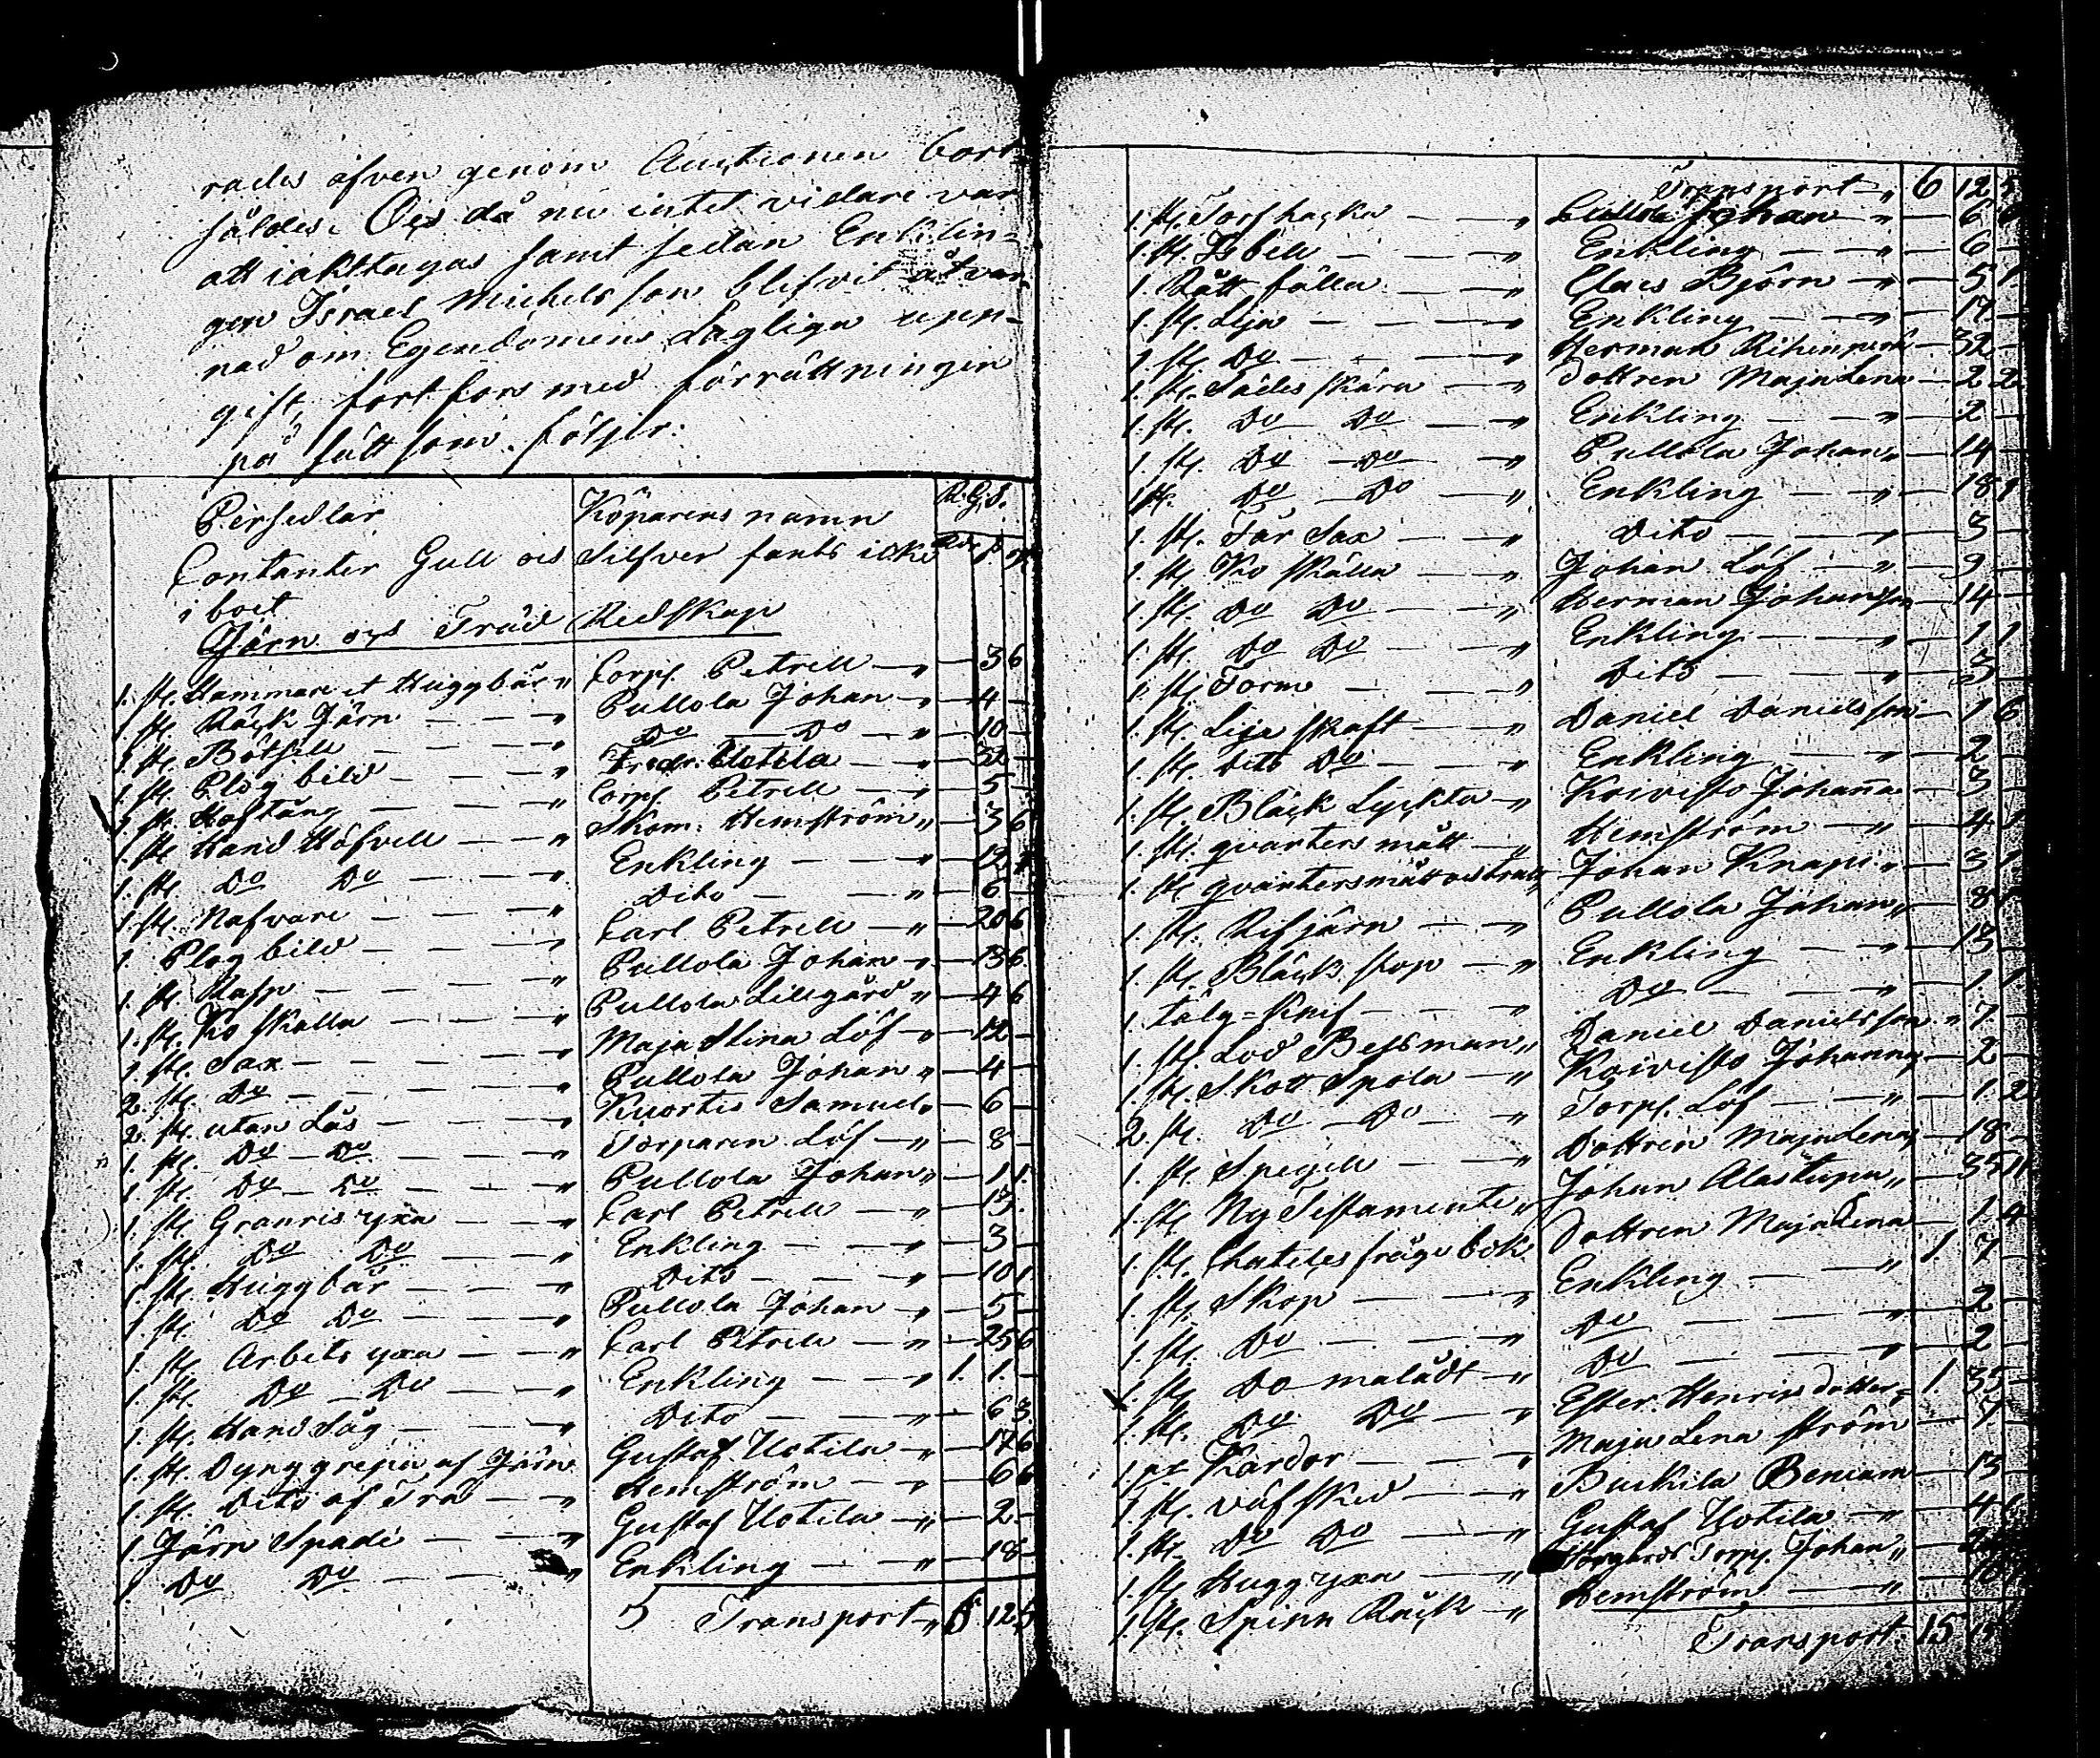 rades äfven genom Auctionen bort
såldes. Och då nu intet vidare var
att iakttagas samt sedan Enklin=
gen Israel Michelsson blifvit åtvar
nad om Egendomens Lagliga upp-
gift, fortfors med förrättningen
på sätt som följer:
Persedlar Köparens namn R. G. S.
Contanter Gull och Silfver fants icke
i boet
Järn och Träd Redskap
1. st. Hammare et Huggbär " Corpl. Petrell — " — 3 6
1. st. Räck Järn — — " Pullola Johan — " — 4 —
1. st. Böthill — — " Do — Do — " — 10 —
1. st. Plog bild — — " Fredr. Uotila — " — 32 —
1. st. Hoftång — — " Corpl. Petrell — " — 5 —
1. st. Hand Höfvell — — " Skom. Hemström " — 3 6
1. st. Do Do — — " Enkling — — " — 12
1. st. Nafvare — — " Dito — — " — 6 —
1. Plog bild — — " Carl Petrell — " — 20 6
1. st. Rasp — — " Pullola Johan — " — 13 6
1. st. Ko skälla — — " Pullola Lillgård " — 4 6
1. st. Sax — — Maja Stina Löf — " — 12 —
2. st. Do — — " Pullola Johan " — 4 —
2. st. utan Lås — — " Kuortis Samuel " — 6 —
1. st. Do — Do — — " Torparen Löf — " — 8 —
1. st. Do — Do — — " Pullola Johan " — 1 1.
1. st. Granris yxa — — " Carl Petrell — " — 13.
1. st. Do Do — — " Enkling — — " — 3 —
1. st. Huggbär — — " Dito — — " — 10 1.
1. st. Do Do — — " Pullola Johan — " — 5 —
1. st. Arbets yxa — — " Carl Petrell — " — 25 6
1. st. Do — Do — — " Enkling — — " 1. 1. —
1. st. Hand Såg — — " Dito — — " — 6 3.
1. st. Dynggrepa af Järn Gustaf Uotila — " — 17 6
1. st. Dito af Trä — — " Hemström — — " — 6 6
1. Järn Spade — — " Gustaf Uotila — " — 2. —
1. Do Do — — " Enkling — — " — 18 —
5 Transport " 6 12 5
Transport " 6 12 5
1. st. Torfhacka — — " Pullola Johan — " — 6
1. st. Isbill — — " Enkling — — " — 6 —
1. Rått fälla — — " Claes Björn — " — 5 1.
1. st. Lja — — " Enkling — — " — 17 —
1. st. Do — — " Herman — 32 —
1. st. Sädes skära — — " Dottren Maja Lena — 2 2
1. st. Do Do — — " Enkling — — " — 2 —
1. st. Do — Do — " Pullola Johan " — 14 —
1 st. Do — Do — " Enkling — — " — 18 1
1. st. Får Sax — — " Dito — — " — 3 —
1. st. Ko skälla — — " Johan Löf — " — 9 —
1. st. Do Do — — " Herman Johansson — 14 —
1. st. Do Do — — " Enkling — — " — 1 1
1. st. Form — — " Dito — — " — 3 —
1. st. Lije skaft — — " Daniel Danielsson — 1 6
1. st. dito Do — — " Enkling — — " — 2 —
1. st. Bläck Lyckta — " Koivisto Johanna — 3 —
1. st. qvarters mått — " Hemström — " — 4 1
1. st. qvartersmått och tratt Johan Knapi " — 3 1
1. st. Rifjärn — — " Pullola Johan " — 8
1. st. Bläck stop — " Enkling — — " — 13 —
1. Tälg=knif — — " Do — — " — 1. 1
1. st. Lod Bessman " Daniel Danielsson " 7 —
1. st. Skott Spola — " Koivisto Johanna — 2 —
2. st. Do — Do — " Torp. Löf — — " — 1. 2
1. st. Spegell — — " Dottren Maja Lena — 18 —
1. st. Ny Testamente " Johan Alastupa " — 35 11
1. st. Chateches fråge bok Dottren Maja Lena — 1. 4
1. st. Skåp — — " Enkling — — " 1 7 —
1. st. Do — — " Do — — " — 2 —
1. st. Do — målådt — " Do — — " — 2 —
1. st. Do Do — " Ester Henrics dotter 1. 35 —
1. par Kardor — — " Maja Lena ström — 7 —
1. st. väfsked — — " Buckila Beniam — 13 —
1. st. Do Do — — " Gustaf Uotila — " — 4 6
1. st. Huggyxa — — " Torp. Johan " — 2
1. st. Spinn Råck — " Hemström — — " — 10
Transport 15